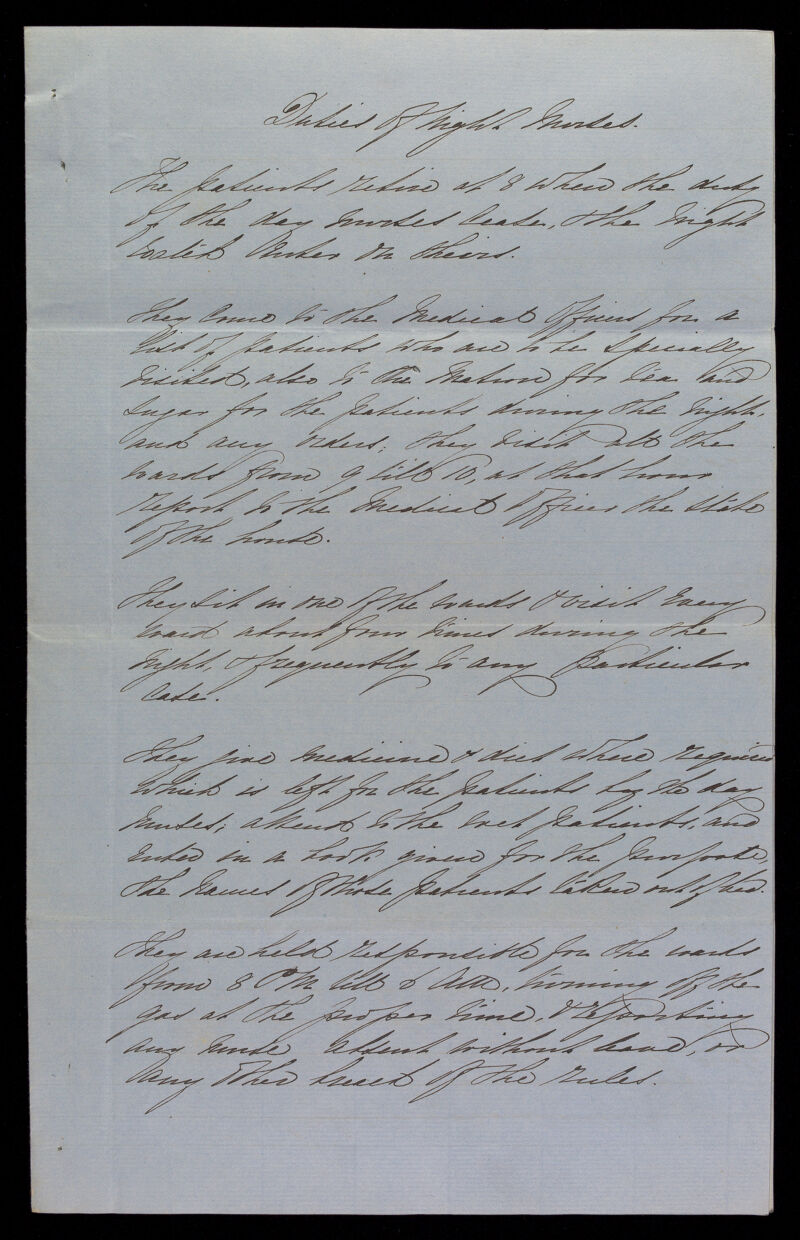 Duties of Night Nurses.
The patients retire at 8 when the duty
of the day nurses cease, & the night
enter on theirs.
They come to the Medical Officers for a
list of patients who are to be specially
visited, also to the Matron for tea and
sugar for the patients during the night,
and any orders; they visit all the
wards from 9 till 10, at that hour
report to the Medical Officer the state
of the house.
They sit in one of the wards & visit every
ward about four times during the
night, & frequently to any particular
case.
They give medicine & diet where required
which is left for the patients by the day
nurses; attend to the wet patients, and
enter in a book given for the purpose,
the names of those patients taken out of bed.
They are held responsible for the wards
from 8 PM till 6 AM, turning off the
gas at the proper time, & reporting
any nurse absent without leave, or
any other breach of the rules.